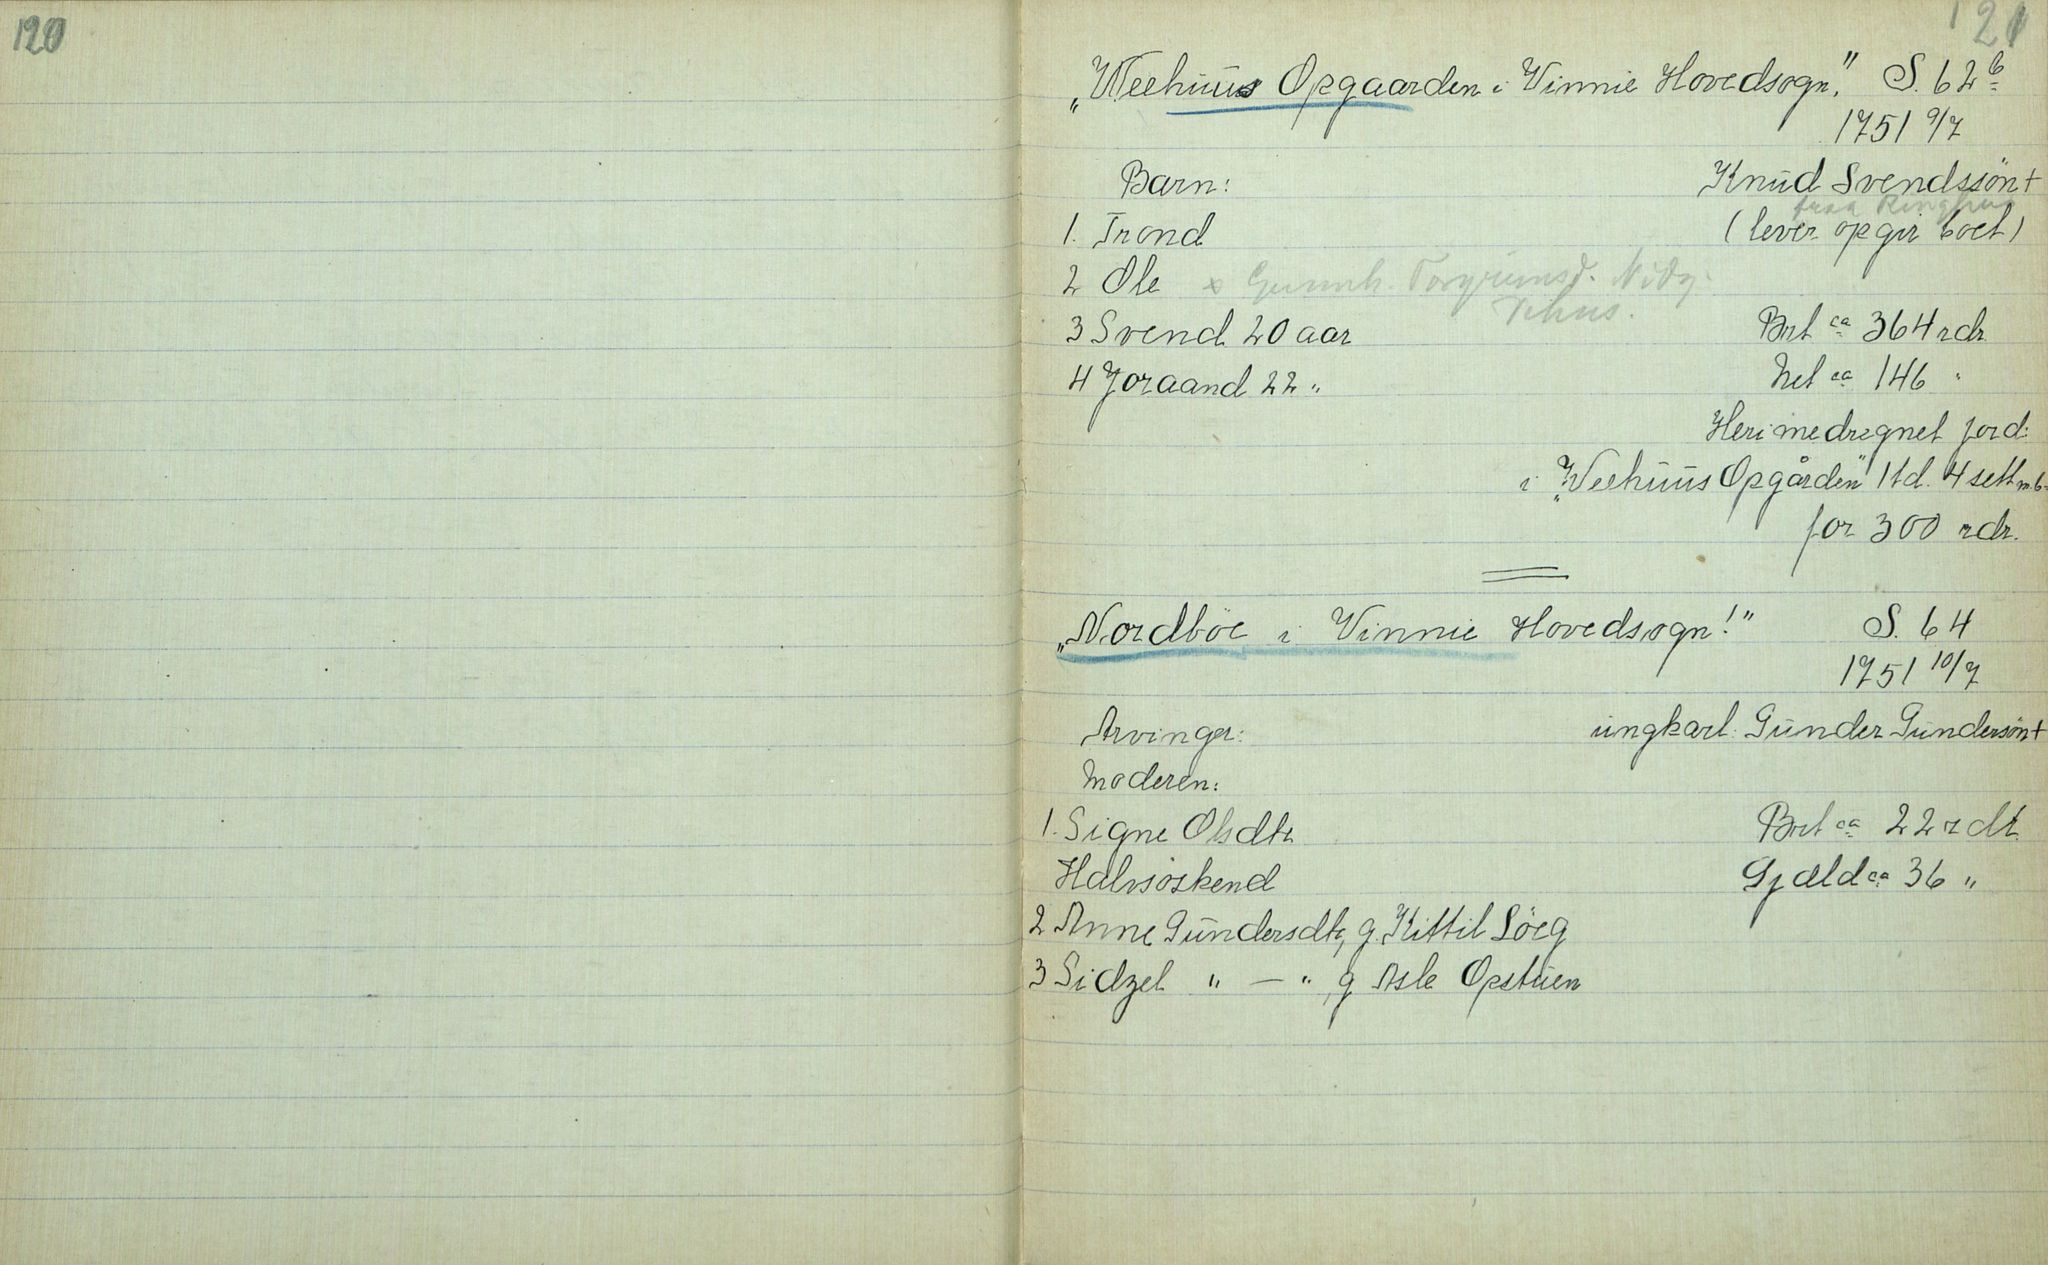 120
121
„Weehuus Opgaarden i Vinnie Hovedsogn." S. 62 b
1751 9/7
Barn: Knud Svendssön +
fraa Ringhus
1. Trond (lever opgir boet)
2 Ole x Gunnh. Torgrimsd. Nidg.
Vehus.
3 Svend 20 aar Brt ca 364 rdr
4 Joraand 22 „ Net ca 146 "
Heri medregnet jord:
i „Weehuus Opgården" 1 td. 4 sett m.b.
for 300 rdr.
„Nordböe i Vinnie Hovedsogn!" S. 64
1751 10/7
Arvinger: ungkarl. Gunder Gundersön +
Moderen:
1. Signe Olsdtr Brt ca 22 rdr
Halvsöskend Gjæld ca 36 „
2 Anne Gundersdtr, g. Kittil Löeg
3 Sidzel „ — „ , g Asle Opstuen